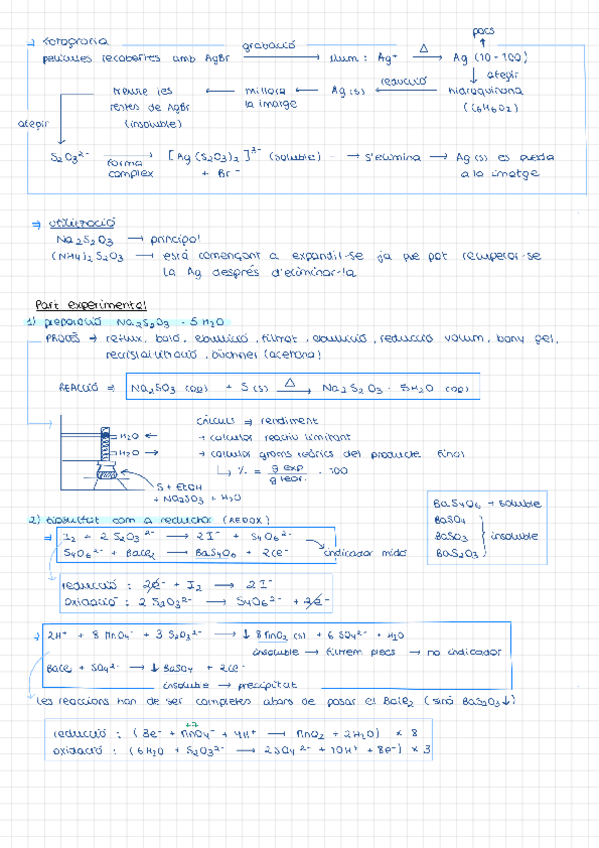 → Fotografia
pocs
pel·lícules recobertes amb AgBr gravació → llum : Ag⁺ Δ → Ag (10-100)
afegir
treure les ← millora ← Ag(s) ← reducció hidroquinona
restes de AgBr la imatge (C6H6O2)
afegir (insoluble)
S2O3²⁻ forma complex → [Ag(S2O3)2]³⁻ (soluble) → s'elimina → Ag(s) es queda
+ Br⁻ a la imatge
⇒ utilització
Na2S2O3 → principal
(NH4)2S2O3 → està començant a expandir-se ja que pot recuperar-se
la Ag després d'eliminar-la
Part experimental
1) preparació Na2S2O3 · 5H2O
PROCÉS → reflux, baló, ebullició, filtrat, ebullició, reducció volum, bany gel,
recristal·lització, büchner (acetona)
REACCIÓ ⇒ Na2SO3 (aq) + S(s) Δ → Na2S2O3 · 5H2O (aq)
càlculs ⇒ rendiment
H2O ← → calcular reactiu limitant
H2O → → calcular grams teòrics del producte final
↳ % = g exp / g teor. · 100
S + EtOH
+ Na2SO3 + H2O
BaS4O6 → soluble
BaSO4
BaSO3 } insoluble
BaS2O3
2) tiosulfat com a reductor (REDOX)
⇒ I2 + 2 S2O3²⁻ → 2I⁻ + S4O6²⁻
S4O6²⁻ + BaCl2 → BaS4O6 + 2Cl⁻ indicador midó
reducció : 2e⁻ + I2 → 2I⁻
oxidació : 2 S2O3²⁻ → S4O6²⁻ + 2e⁻
2H⁺ + 8 MnO4⁻ + 3 S2O3²⁻ → ↓ 8 MnO2 (s) + 6 SO4²⁻ + H2O
insoluble → filtrem plecs → no indicador
BaCl2 + SO4²⁻ → ↓ BaSO4 + 2Cl⁻
insoluble → precipitat
Les reaccions han de ser completes abans de posar el BaCl2 (sinó BaS2O3↓)
+7
reducció : (3e⁻ + MnO4⁻ + 4H⁺ → MnO2 + 2H2O) × 8
oxidació : (5H2O + S2O3²⁻ → 2SO4²⁻ + 10H⁺ + 8e⁻) × 3